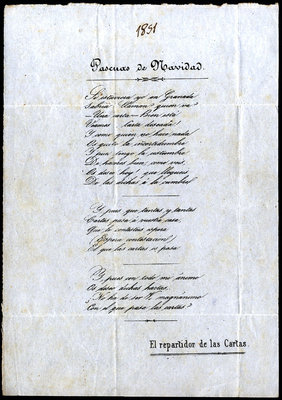 1891
Pascuas de Navidad.
Si estuviera yo en Granada
Sabría llaman quien va?
Una carta Bien está
Veamos
Y como quien no hace nada
Os quito la incertidumbre
Y pues tengo la costumbre
De haceros bien, como veis,
Os deseo hoy que lleguéis
De las dichas a la cumbre!
Y pues que tantas y tantas
Cartas pasó a vuestra casa,
Que le contestéis espera
Espera contestación
El que las cartas os pasa
Y pues con todo mi ánimo
Os deseo dichas hartas,
¿No ha de ser V. magnánimo
Con el que pasa las cartas?
El repartidor de las Cartas.